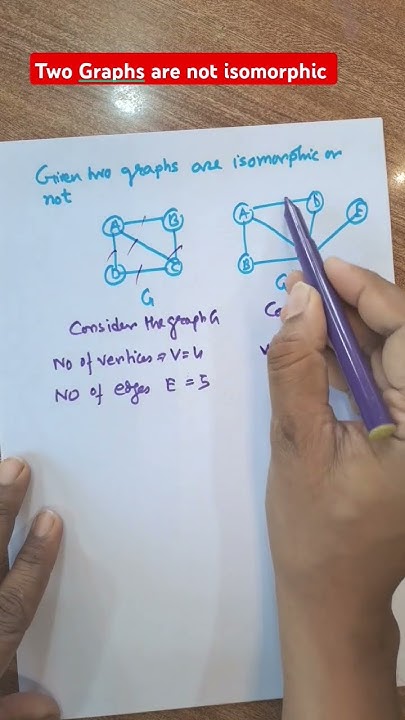 Two Graphs are not isomorphic
Given two graphs are isomorphic or
not
A B
D C
G
A D E
B
G
Consider the graph G
Co
No of vertices = V = 4
V
NO of edges E = 5